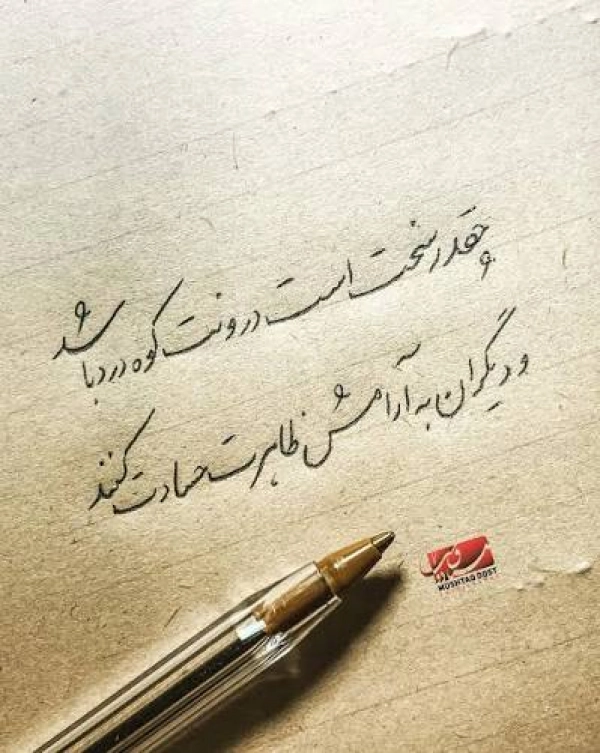 چقدر سخت است درونت کوه درد باشد
و دیگران به آرامش ظاهرت حسادت کنند
MUSHTAQ DOST